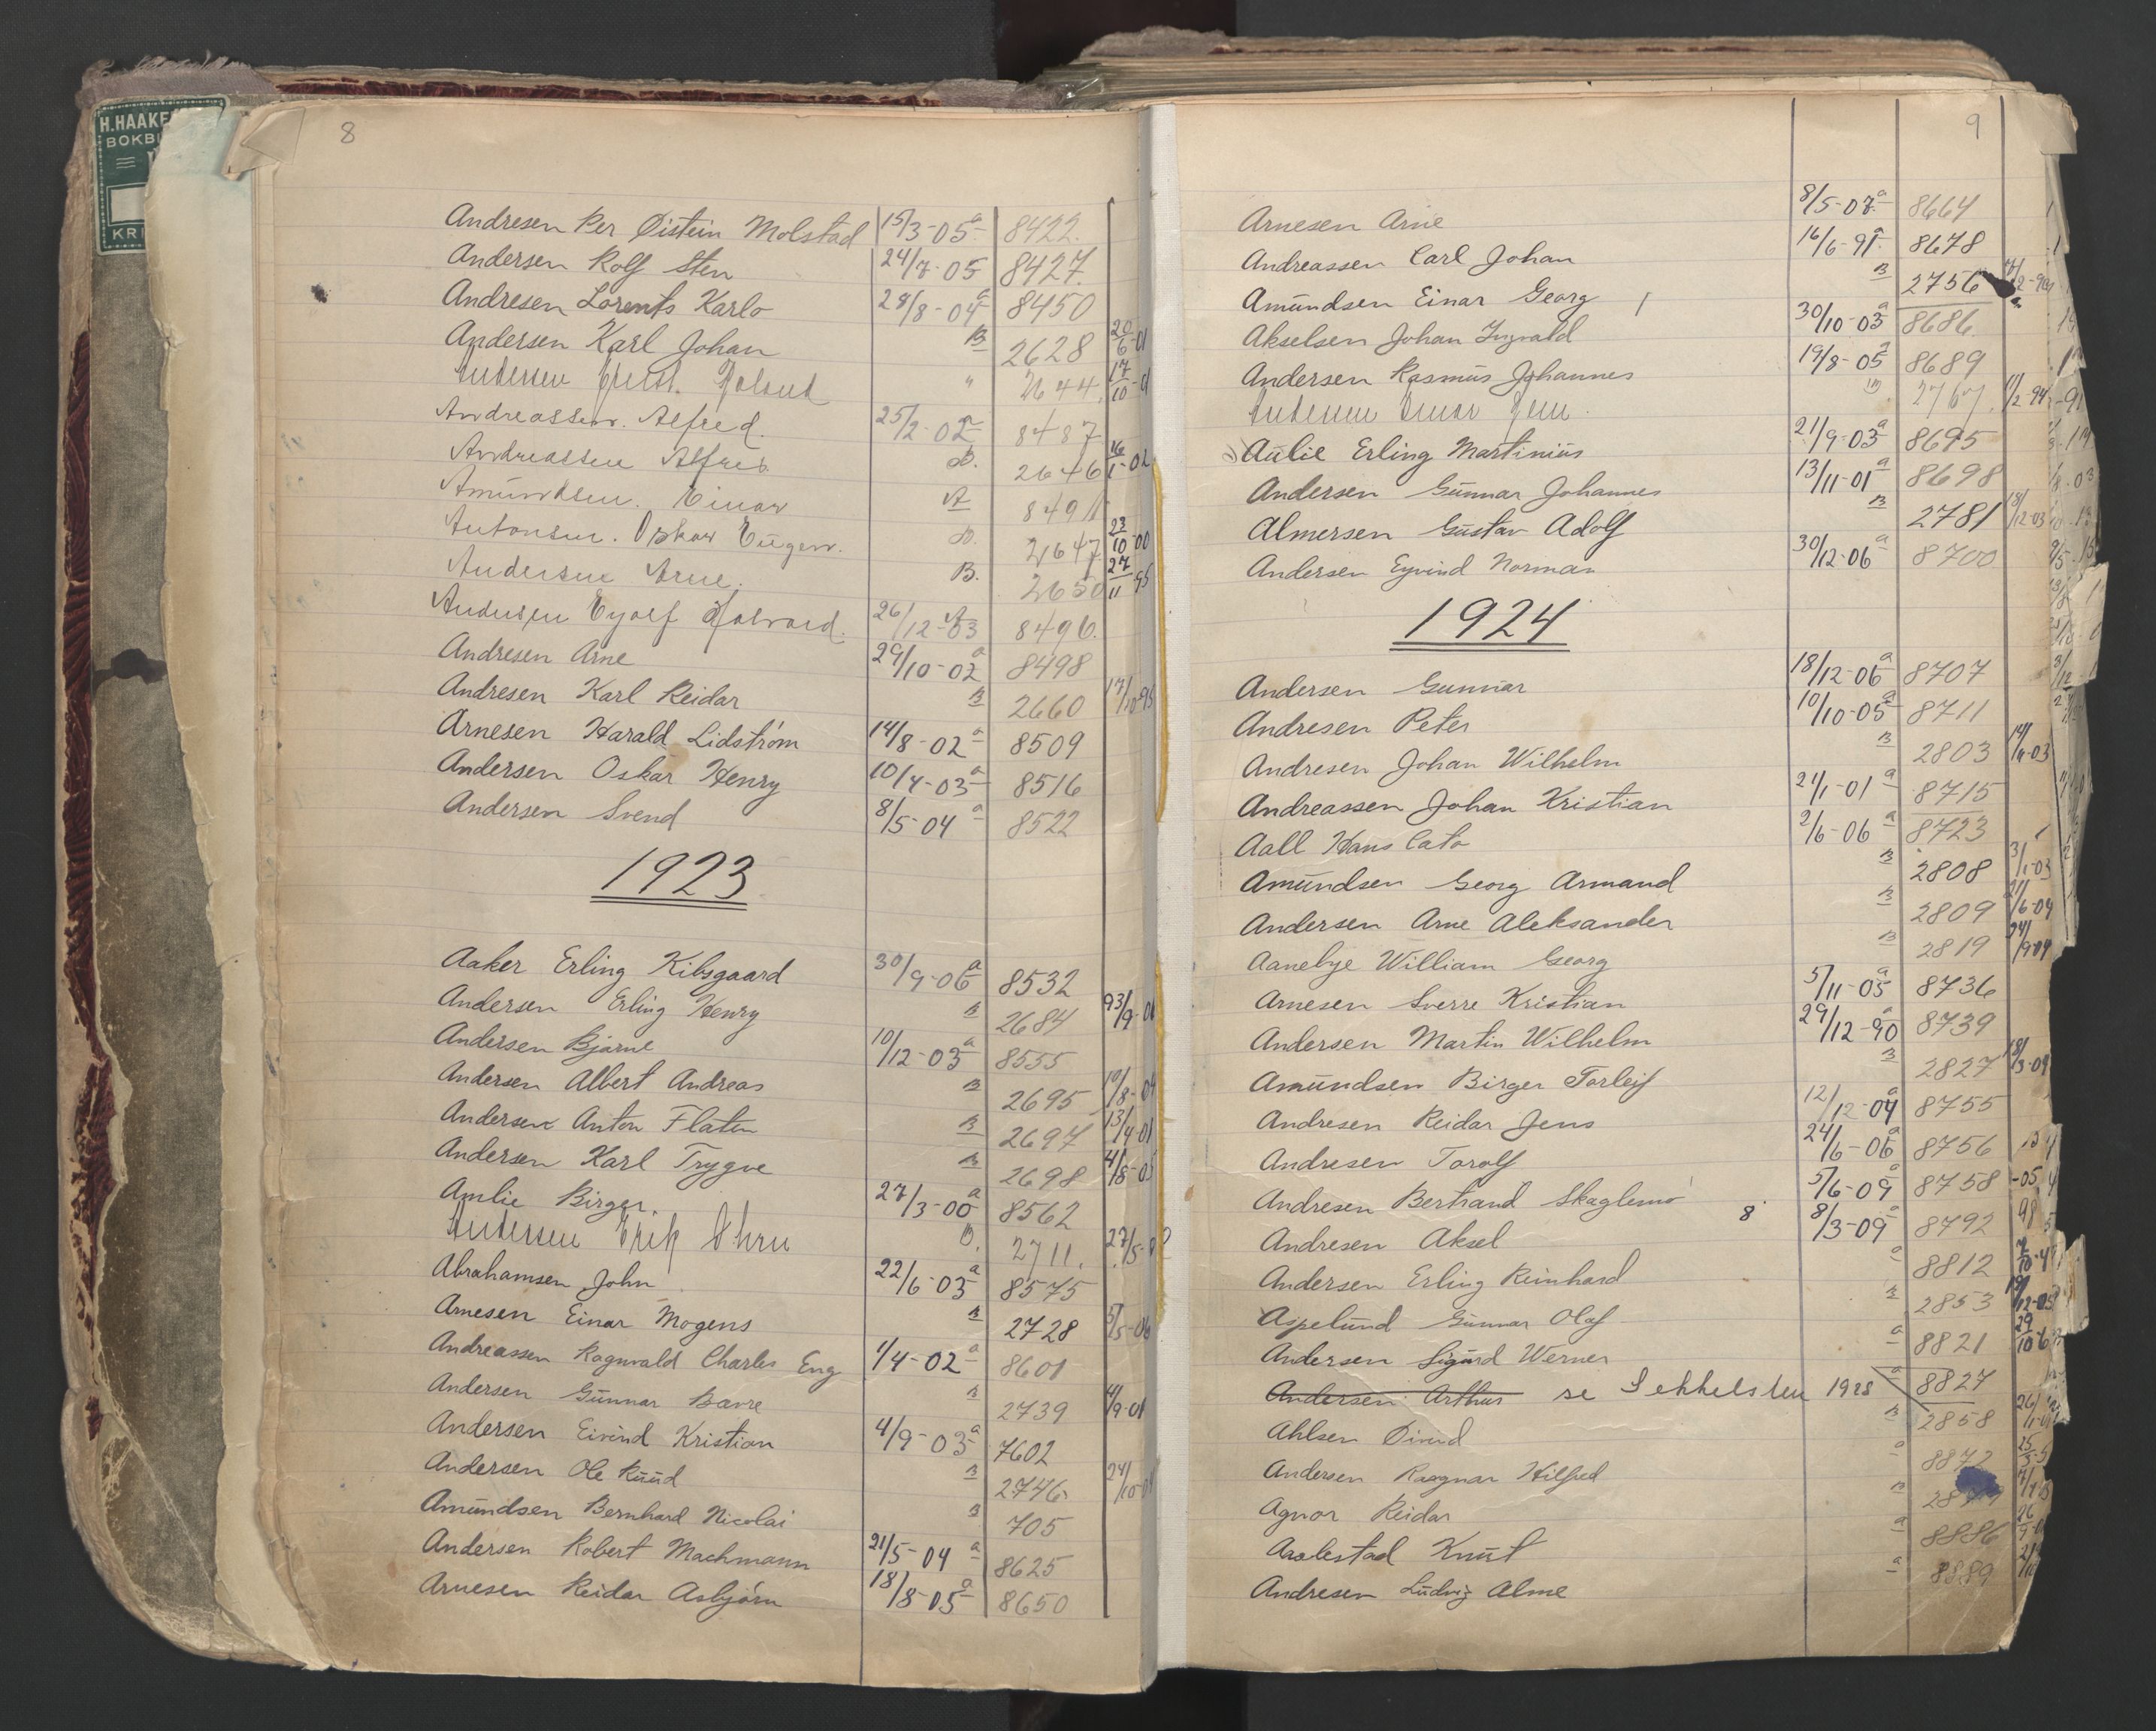 H. HAAKE
BOKBI
KRI
8
Andresen Per Øistein Molstad 15/3-05 a 8422.
Andersen Rolf Sten 24/7-05 8427.
Andresen Lorents Karlo 28/8-04 a 8450
Andersen Karl Johan B 2628 20/6-01
Andersen " 2644. 17/10-01
Andreassen. Alfred. 25/2-02 8487
Andreassen Alfred. B. 2646 16/1-02
Amundsen. Einar A 8491
Antonsen. Oskar Eugen. B. 2647 23/10-00
Andersen Arne. B. 2650 27/11-95
Andersen Eyolf Halvard. 26/12-03 A 8496.
Andresen Arne 29/10-02 a 8498
Andresen Karl Reidar B 2660 17/10-95
Arnesen Harald Lidstrøm 14/8-02 a 8509
Andersen Oskar Henry 10/4-03 a 8516
Andersen Svend 8/5-04 a 8522
1923
Aaker Erling Kibsgaard 30/9-06 a 8532
Andersen Erling Henry B 2684
Andersen Bjarne 10/12-03 a 8555
Andersen Albert Andreas B 2695 10/8-04
Andersen Anton Flaten B 2697 13/4-01
Andersen Karl Trygve B 2698 4/8-05
Amlie Birger. 27/3-00 a 8562
Andersen Erik B. 2711. 27/5-8
Abrahamsen John 22/6-03 a 8575
Arnesen Einar Mogens B 2728 5/5-06
Andreassen Ragnvald Charles Eng 1/4-02 a 8601
Andersen Gunnar Bavre B 2739 4/9-01
Andersen Eivind Kristian 4/9-03 a 7602
Andersen Ole Ruud B 2746. 24/10-04
Amundsen Bernhard Nicolai B 705
Andersen Robert Machmann 21/5-04 a 8625
Arnesen Reidar Asbjørn 18/8-05 a 8650
9
Arnesen Arne 8/5-07 a 8664
Andreassen Carl Johan 16/6-91 a 8678
Amundsen Einar Georg B 2756
Akselsen Johan Ingvald 30/10-03 a 8686.
Andersen Rasmus Johannes 19/8-05 a 8689
Andersen Einar B 2767. 11/2-94
Aulie Erling Martinius 21/9-03 a 8695
Andersen Gunnar Johannes 13/11-01 a 8698
Almersen Gustav Adolf B 2781 18/12-03
Andersen Eyvind Norman 30/12-06 a 8700
1924
Andersen Gunnar 18/12-06 a 8707
Andresen Peter 10/10-05 a 8711
Andresen Johan Wilhelm B 2803
Andreassen Johan Kristian 21/1-01 a 8715
Aall Hans Cato 2/6-06 a 8723
Amundsen Georg Armand B 2808 31/1-03
Andersen Arne Aleksander B 2809 21/6-04
Aanebye William Georg B 2819 24/9-04
Arnesen Sverre Kristian 5/11-05 a 8736
Andersen Martin Wilhelm 29/12-90 a 8739
Amundsen Birger Torleif B 2827 18/3-04
Andresen Reidar Jens 12/12-04 a 8755
Andresen Torolf 24/6-06 a 8756
Andresen Bertrand Skaglemo 5/6-09 a 8758
Andresen Aksel 8 8/3-09 a 8792
Andersen Erling Reinhard a 8812
Aspelund Gunnar Olaf B 2853 19/12-05
Andersen Sigurd Werner a 8821
Andersen Arthur se Sekkelsten 1928 a 8827
Ahlsen Øivind B 2858
Andersen Ragnar Hilfred a 8872
Agnor Reidar B
Aaolestad Knut a 8886
Andresen Ludvig Alme a 8889